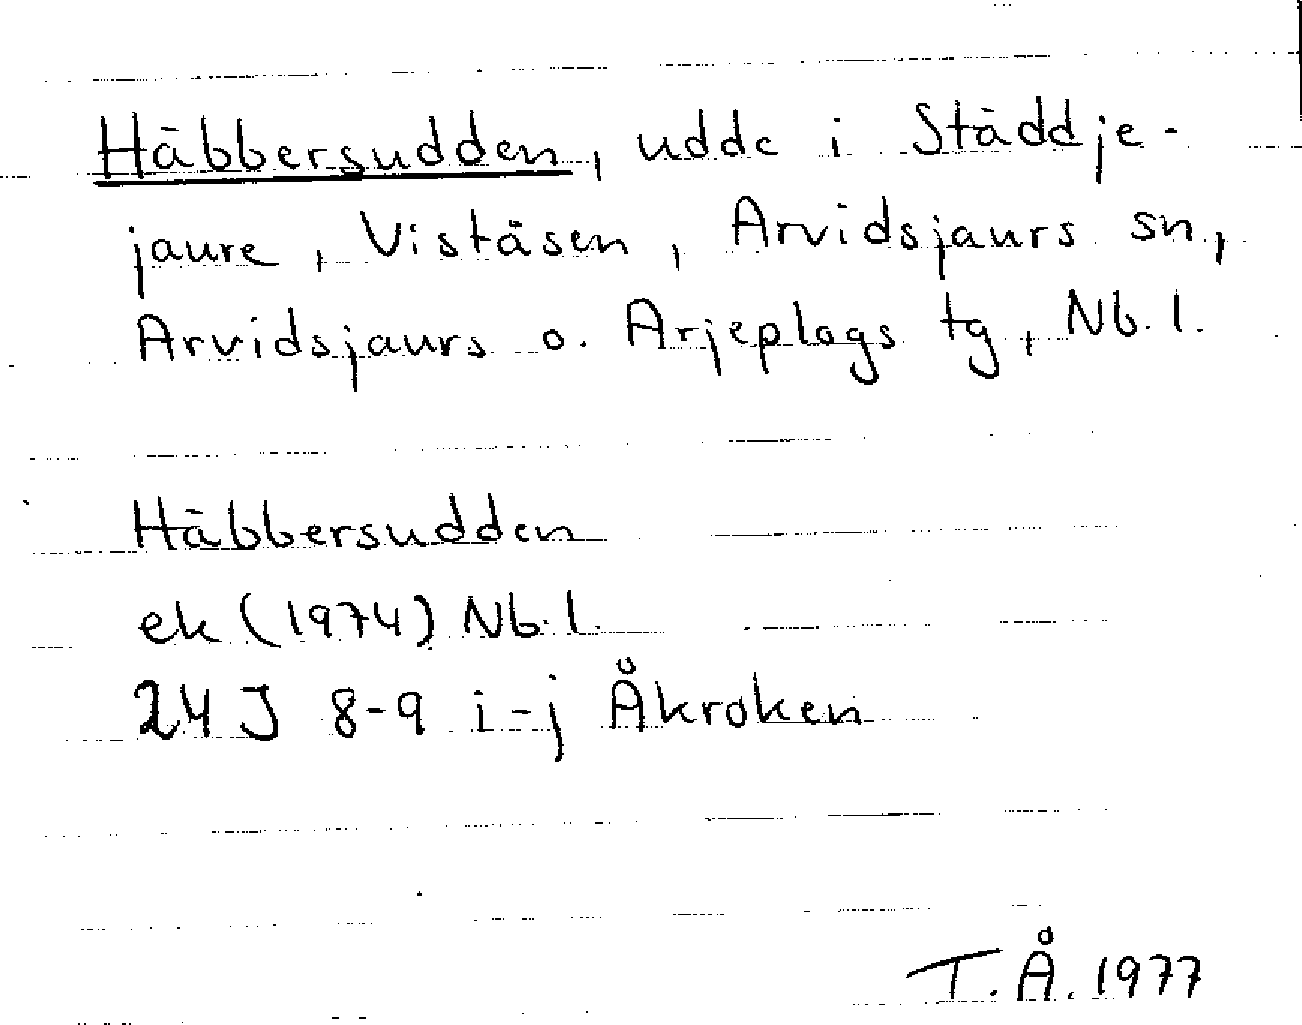 Häbbersudden, udde i Städdje-
jaure, Viståsen, Arvidsjaurs sn,
Arvidsjaurs o. Arjeplogs tg, Nb. l.
Häbbersudden
ek (1974) Nb. l.
24 J 8-9 i-j Åkroken
T. Å. 1977